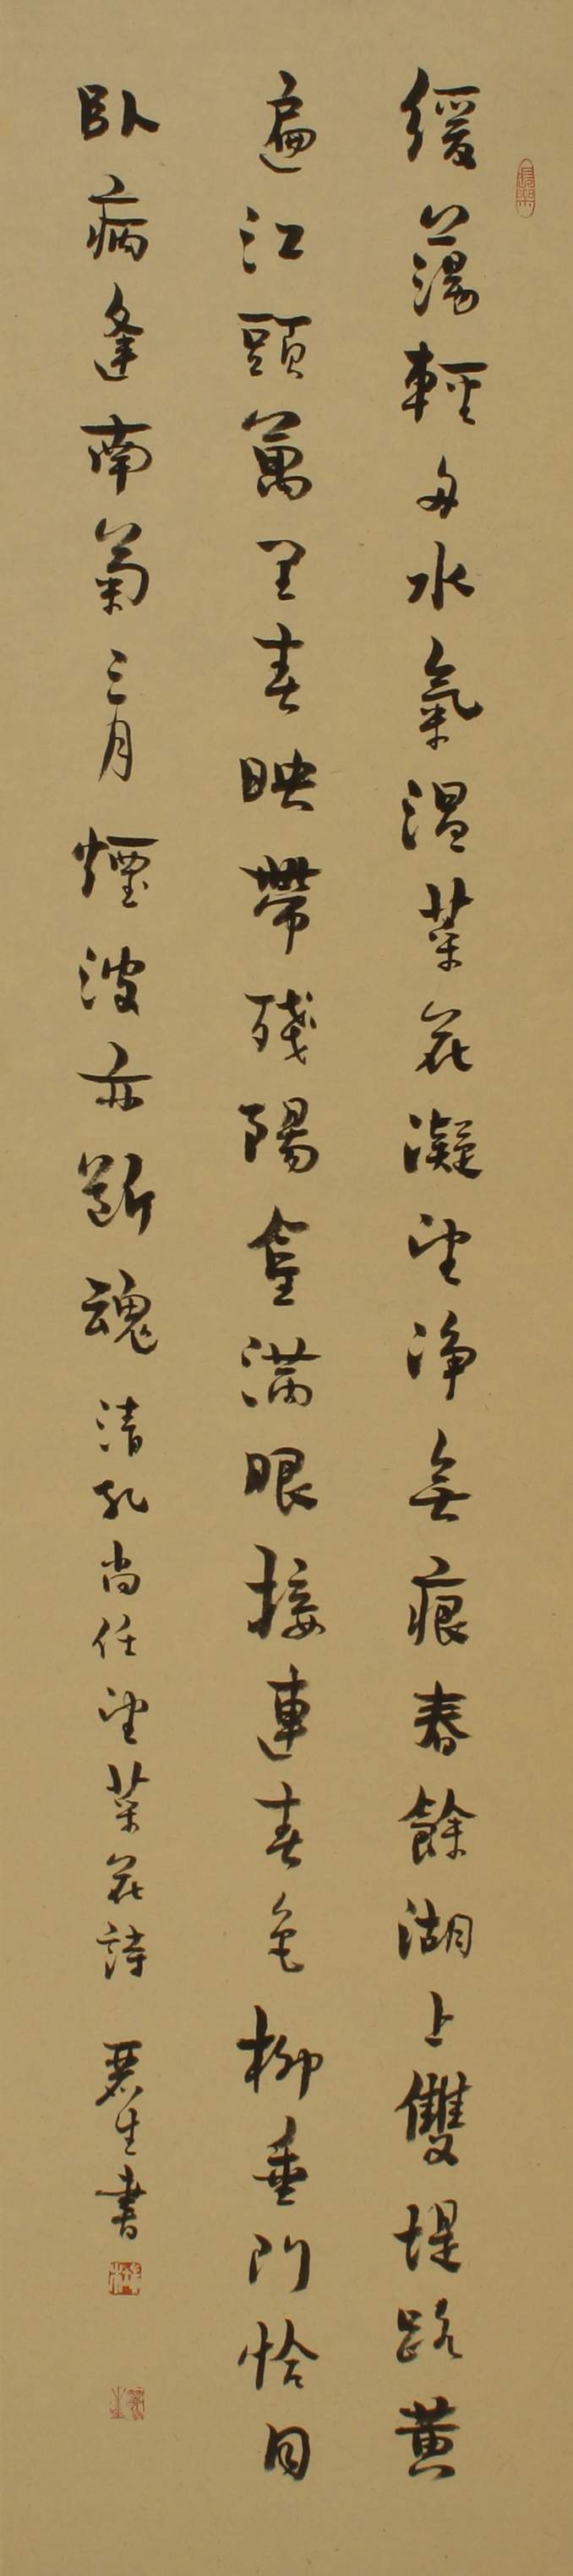 緩蕩輕舟水氣溫菜花凝望淨無痕春餘湖上雙堤路黃
遍江頭萬里春映帶殘陽金滿眼接連春色柳垂門恰同
臥病逢南菊三月煙波亦斷魂清孔尚任望菜花詩 君生書